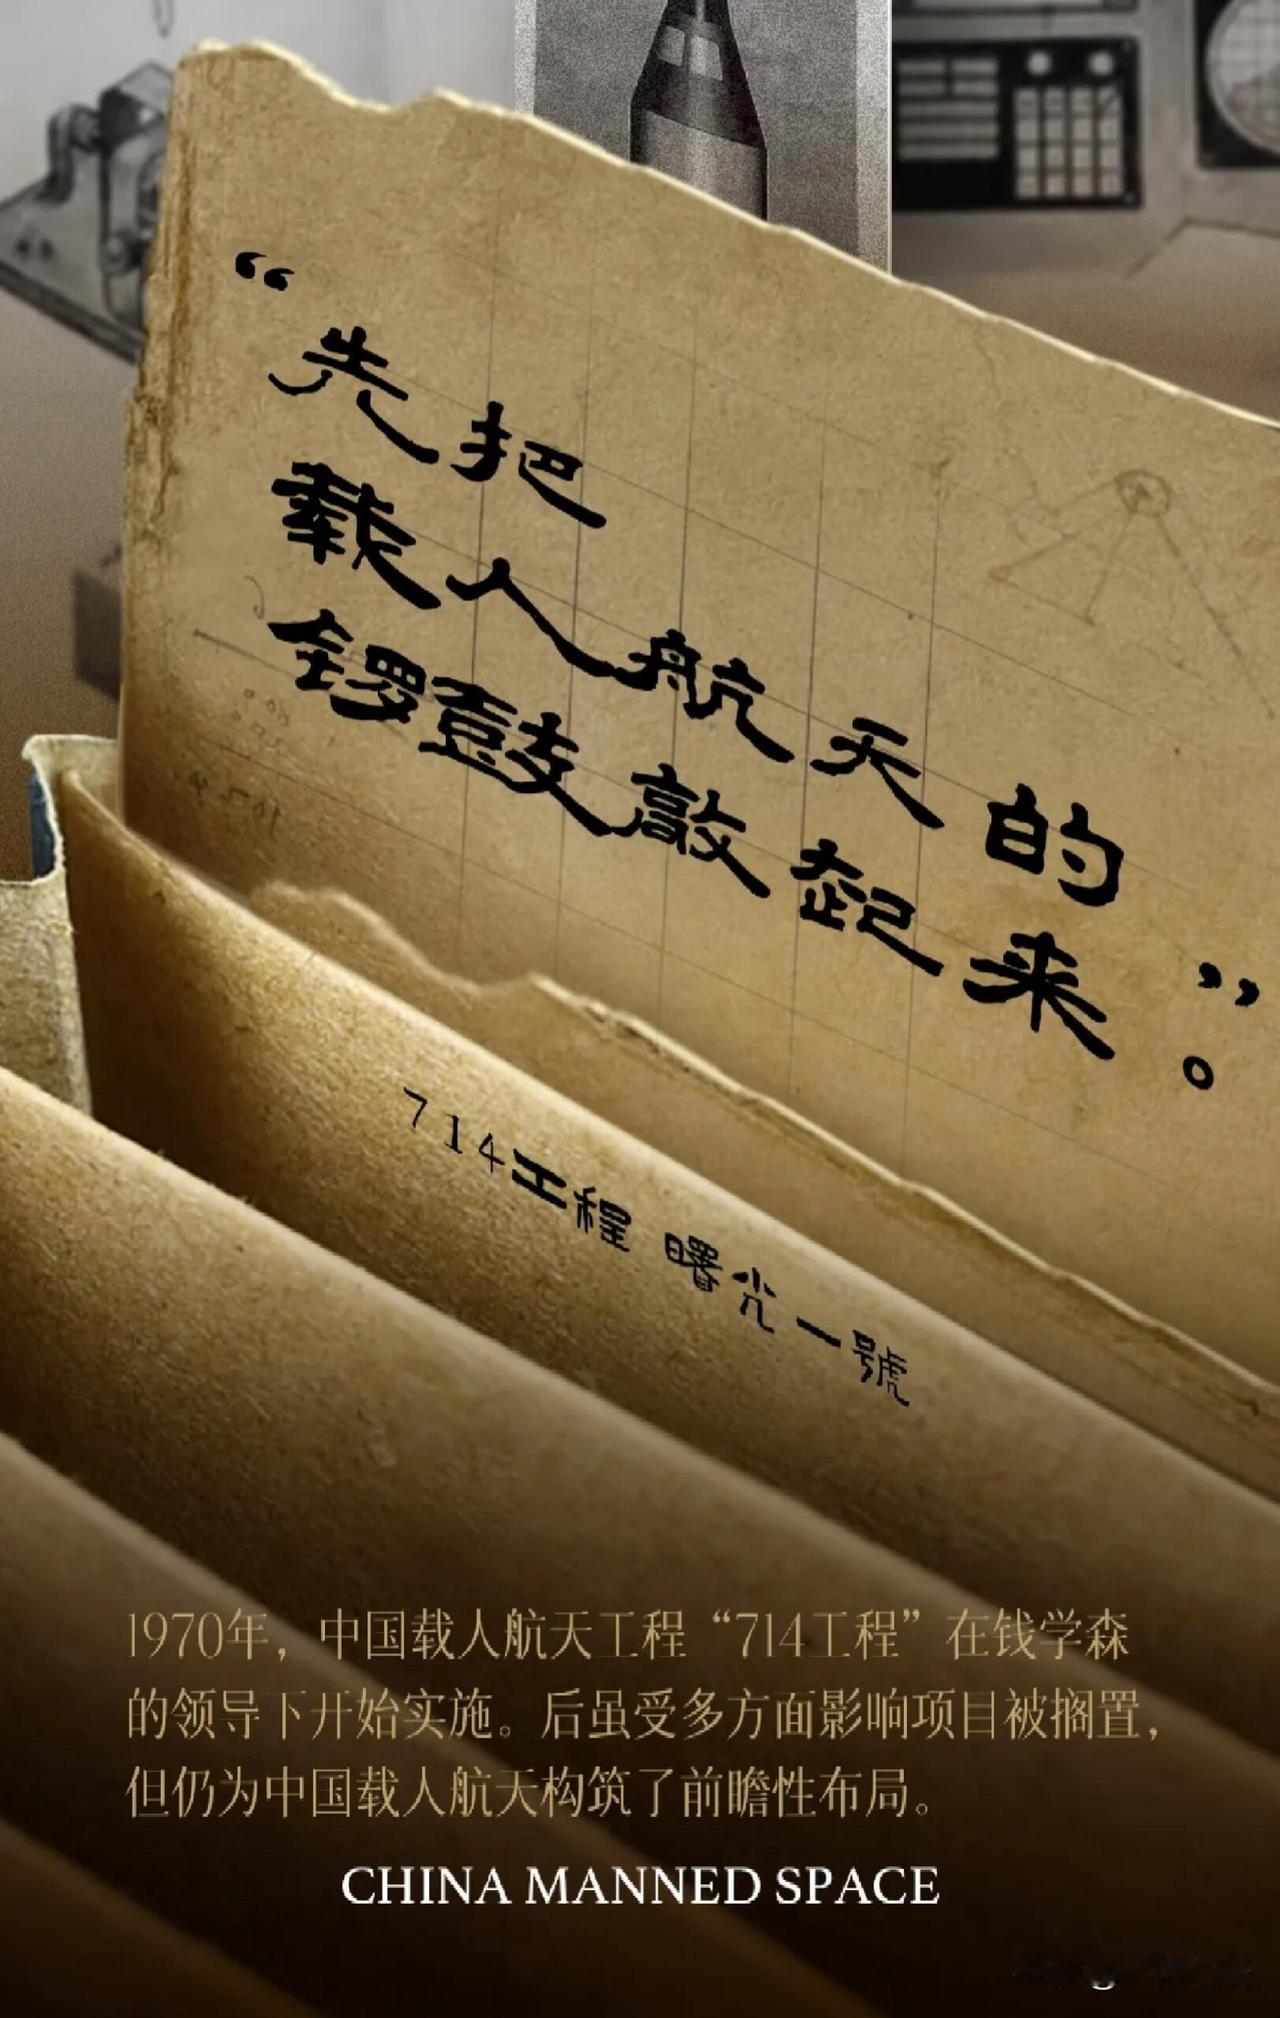 “
先把
载人航天的
锣鼓敲起来”。
714工程 曙光一號
1970年，中国载人航天工程“714工程”在钱学森
的领导下开始实施。后虽受多方面影响项目被搁置，
但仍为中国载人航天构筑了前瞻性布局。
CHINA MANNED SPACE